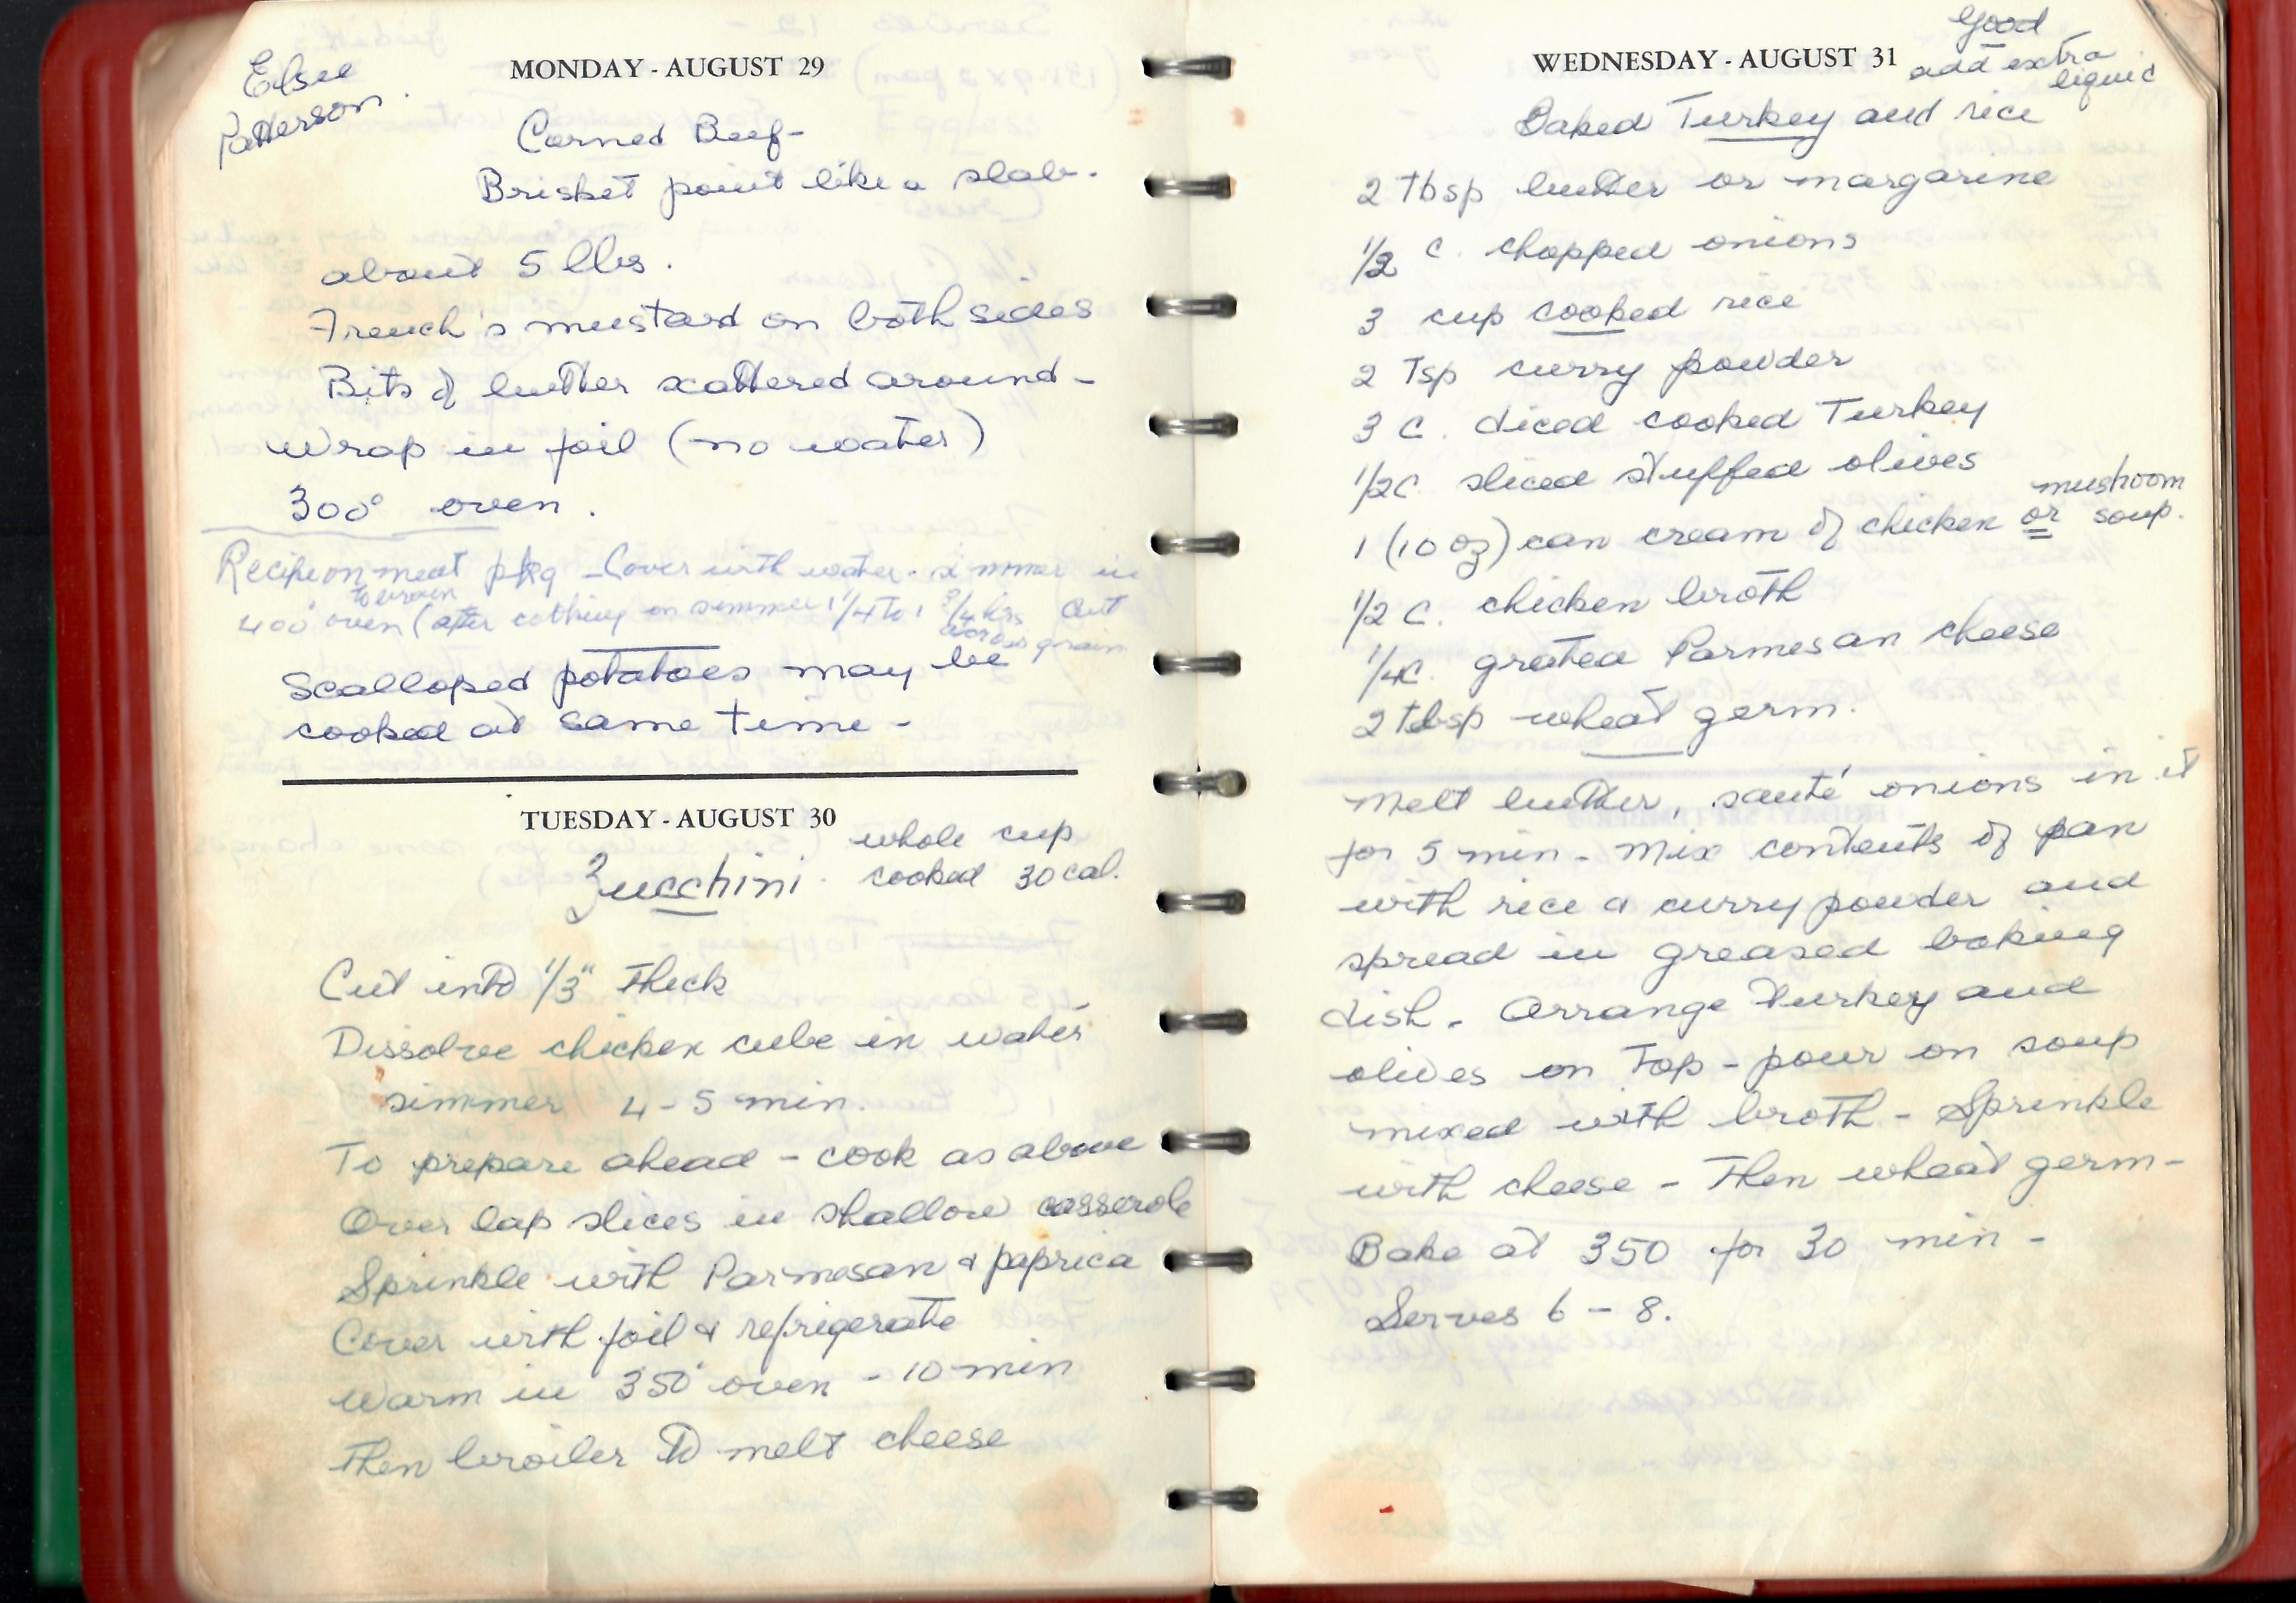 Elsee
Patterson.
MONDAY - AUGUST 29
Corned Beef-
Brisket point like a slab.
about 5 lbs.
French's mustard on both sides
Bits of butter scattered around -
Wrap in foil (no water)
300° oven.
Recipe on meat pkg - Cover with water - simmer in
to brown
400° oven (after cooking on simmer 1 1/4 to 1 3/4 hrs Cut
across grain
Scalloped potatoes may be
cooked at same time -
TUESDAY - AUGUST 30
whole cup
Zucchini. cooked 30 cal.
Cut into 1/3" thick
Dissolve chicken cube in water
simmer 4-5 min.
To prepare ahead - cook as above
Over lap slices in shallow casserole
Sprinkle with Parmesan & paprica
Cover with foil & refrigerate
Warm in 350° oven - 10 min
Then broiler to melt cheese
Good
WEDNESDAY - AUGUST 31
add extra
liquid
Baked Turkey and rice
2 Tbsp butter or margarine
1/2 C. chopped onions
3 cup cooked rice
2 Tsp curry powder
3 C. diced cooked Turkey
1/2 C. sliced stuffed olives
mushroom
1 (10 oz) can cream of chicken or soup.
1/2 C. chicken broth
1/4 C. grated Parmesan cheese
2 tbsp wheat germ.
Melt butter, sauté onions in it
for 5 min - Mix contents of pan
with rice & curry powder and
spread in greased baking
dish - Arrange turkey and
olives on Top - pour on soup
mixed with broth - Sprinkle
with cheese - Then wheat germ -
Bake at 350 for 30 min -
Serves 6 - 8.